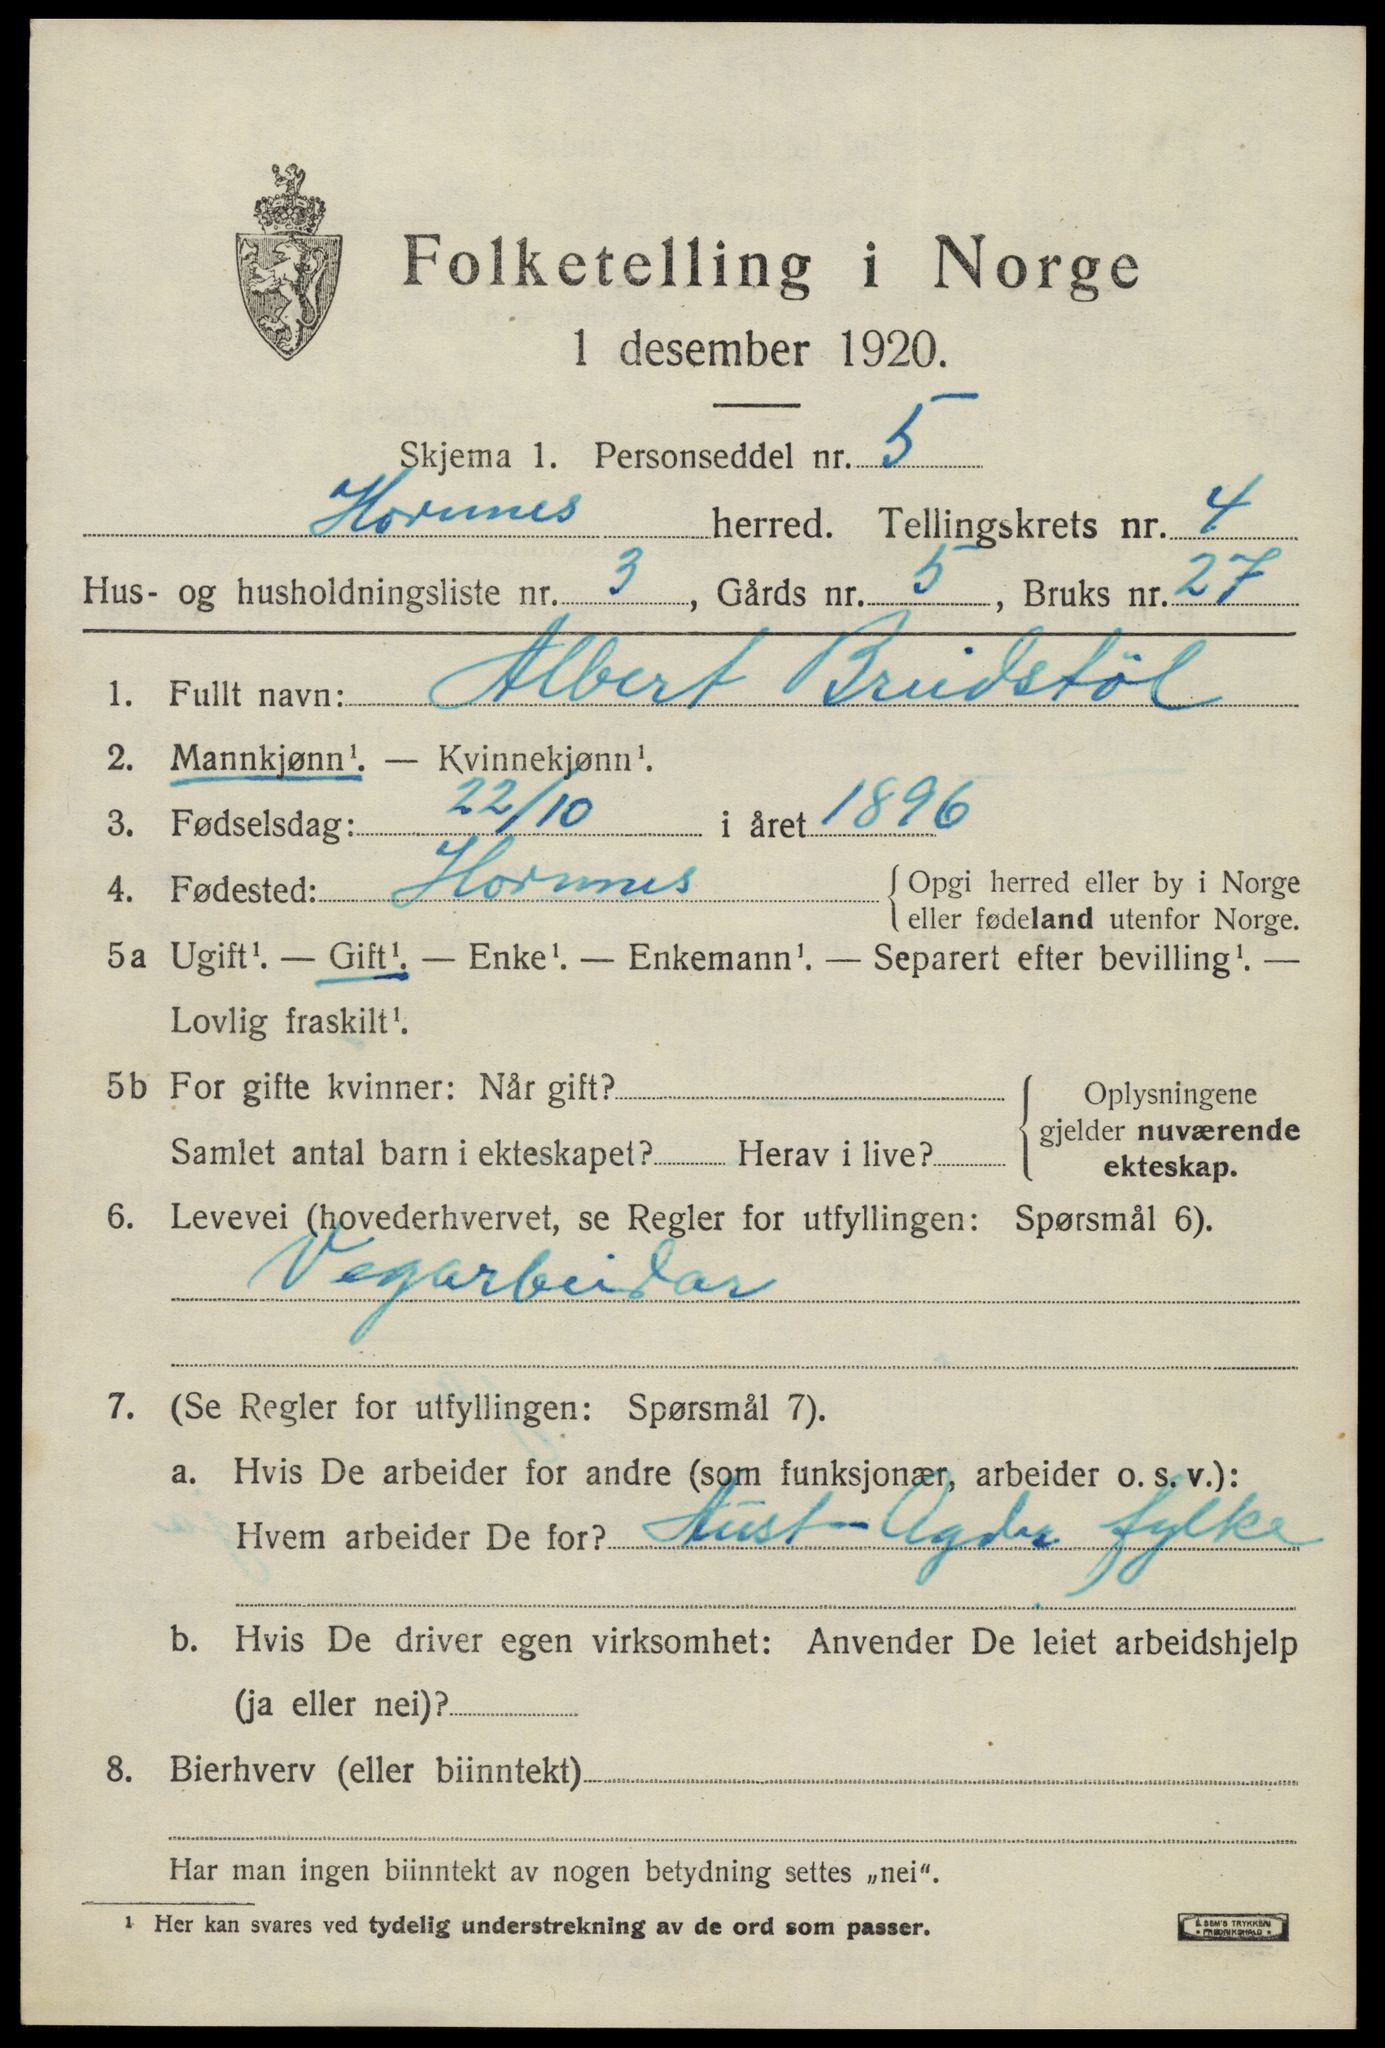 Folketelling i Norge
1 desember 1920.
Skjema 1. Personseddel nr. 5
Hornnes herred. Tellingskrets nr. 4
Hus- og husholdningsliste nr. 3, Gårds nr. 5, Bruks nr. 27
1. Fullt navn: Albert Breidstöl
2. Mannkjønn¹. — Kvinnekjønn¹.
3. Fødselsdag: 22/10 i året 1896
4. Fødested: Hornnes { Opgi herred eller by i Norge
eller fødeland utenfor Norge.
5a Ugift¹. — Gift¹. — Enke¹. — Enkemann¹. — Separert efter bevilling¹. —
Lovlig fraskilt¹.
5b For gifte kvinner: Når gift?
Samlet antal barn i ekteskapet? Herav i live?
{ Oplysningene
gjelder nuværende
ekteskap.
6. Levevei (hovederhvervet, se Regler for utfyllingen: Spørsmål 6).
Vegarbeidar
7. (Se Regler for utfyllingen: Spørsmål 7).
a. Hvis De arbeider for andre (som funksjonær, arbeider o. s. v.):
Hvem arbeider De for? Aust-Agder fylke
b. Hvis De driver egen virksomhet: Anvender De leiet arbeidshjelp
(ja eller nei)?
8. Bierhverv (eller biinntekt)
Har man ingen biinntekt av nogen betydning settes „nei“.
¹ Her kan svares ved tydelig understrekning av de ord som passer.
E. SEM'S TRYKKERI
• FREDRIKSHALD •